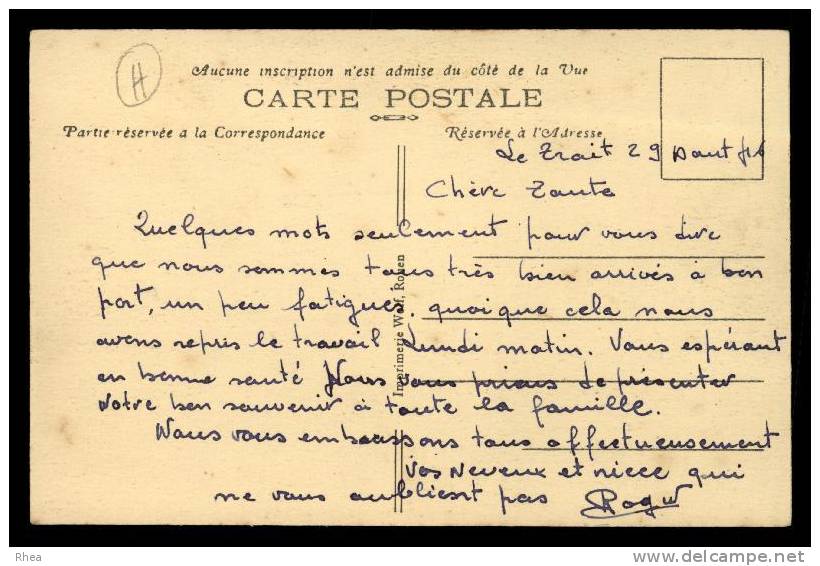 H
Aucune inscription n'est admise du côté de la Vue
CARTE POSTALE
Partie réservée a la Correspondance
Réservée à l'Adresse
Le Trait 29 Aout
Chère Tante
Quelques mots seulement pour vous dire
que nous sommes tous très bien arrivés à bon
port, un peu fatigues. quoique cela nous
avons repris le travail Lundi matin. Vous espérant
en bonne santé Nous vous prions de présenter
notre bon souvenir à toute la famille.
Nous vous embrassons tous affectueusement
vos neveux et niece qui
ne vous oublient pas
Imprimerie Wolf, Rouen
Rhea
delcampe.net